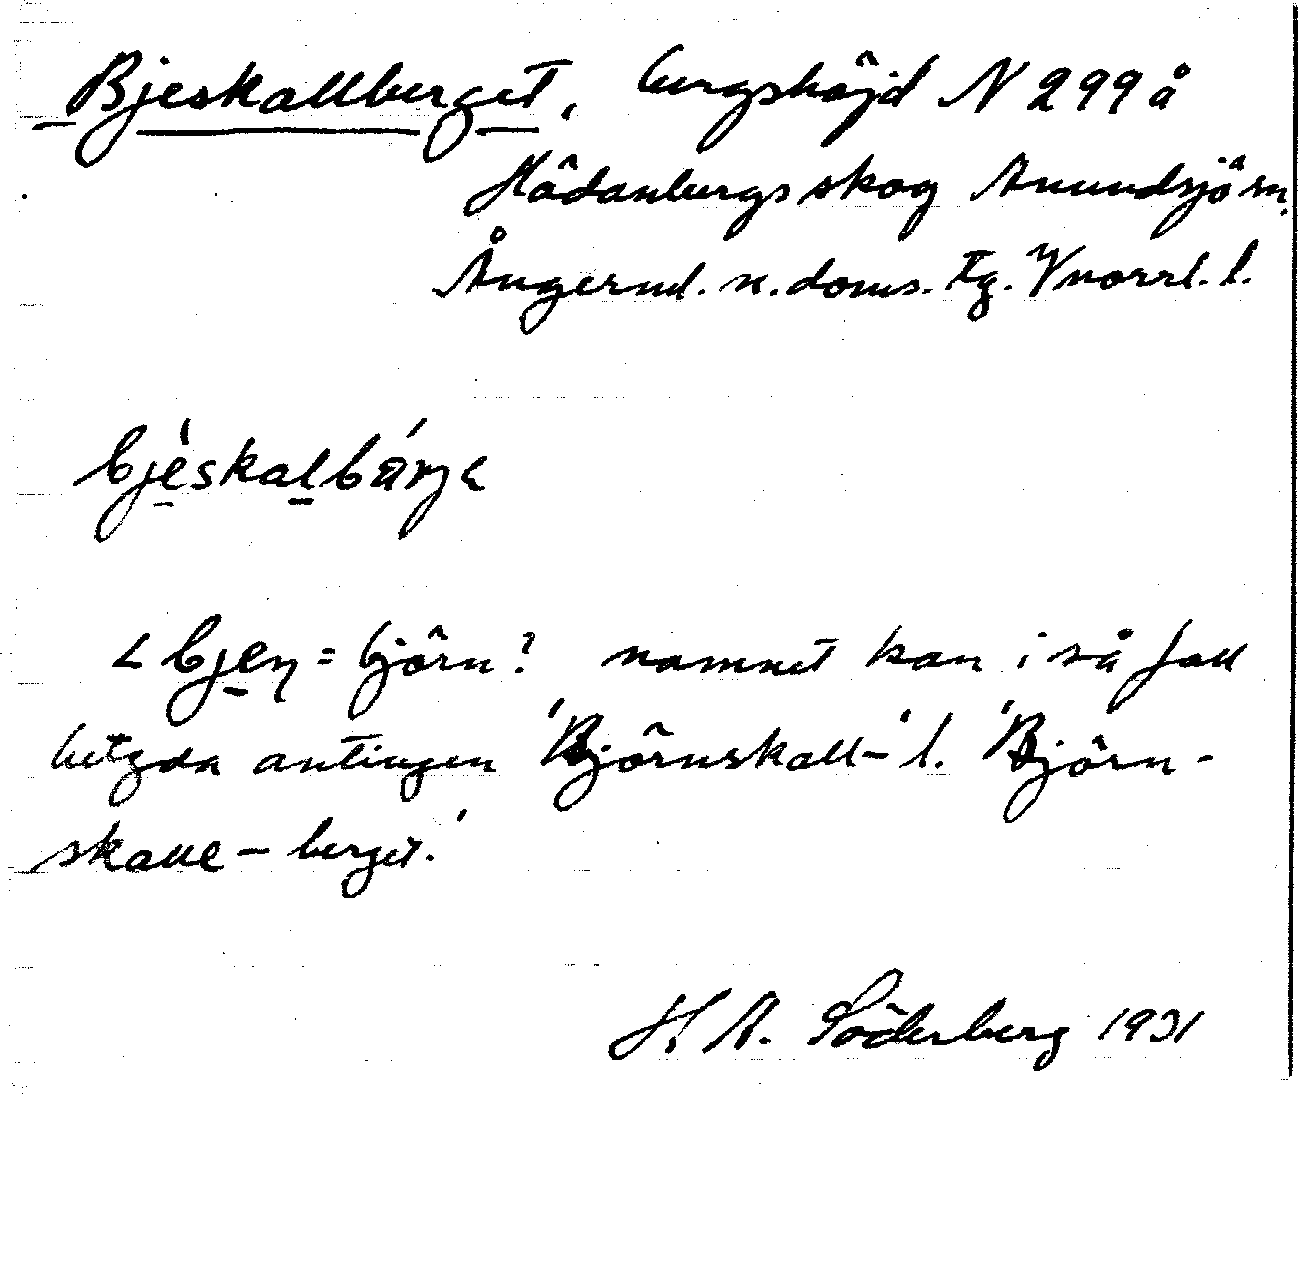 Bjeskallberget, bergshöjd N 299 å
Hädanbergs skog Anundsjö sn.
Ångerml. n. doms. tg. Vnorrl. l.
bjèskalbárjɛ
< bjeṇ = björn? namnet kan i så fall
betyda antingen 'Björnskall-' l. 'Björn-
skalle-berget.'
H. A. Söderberg 1931